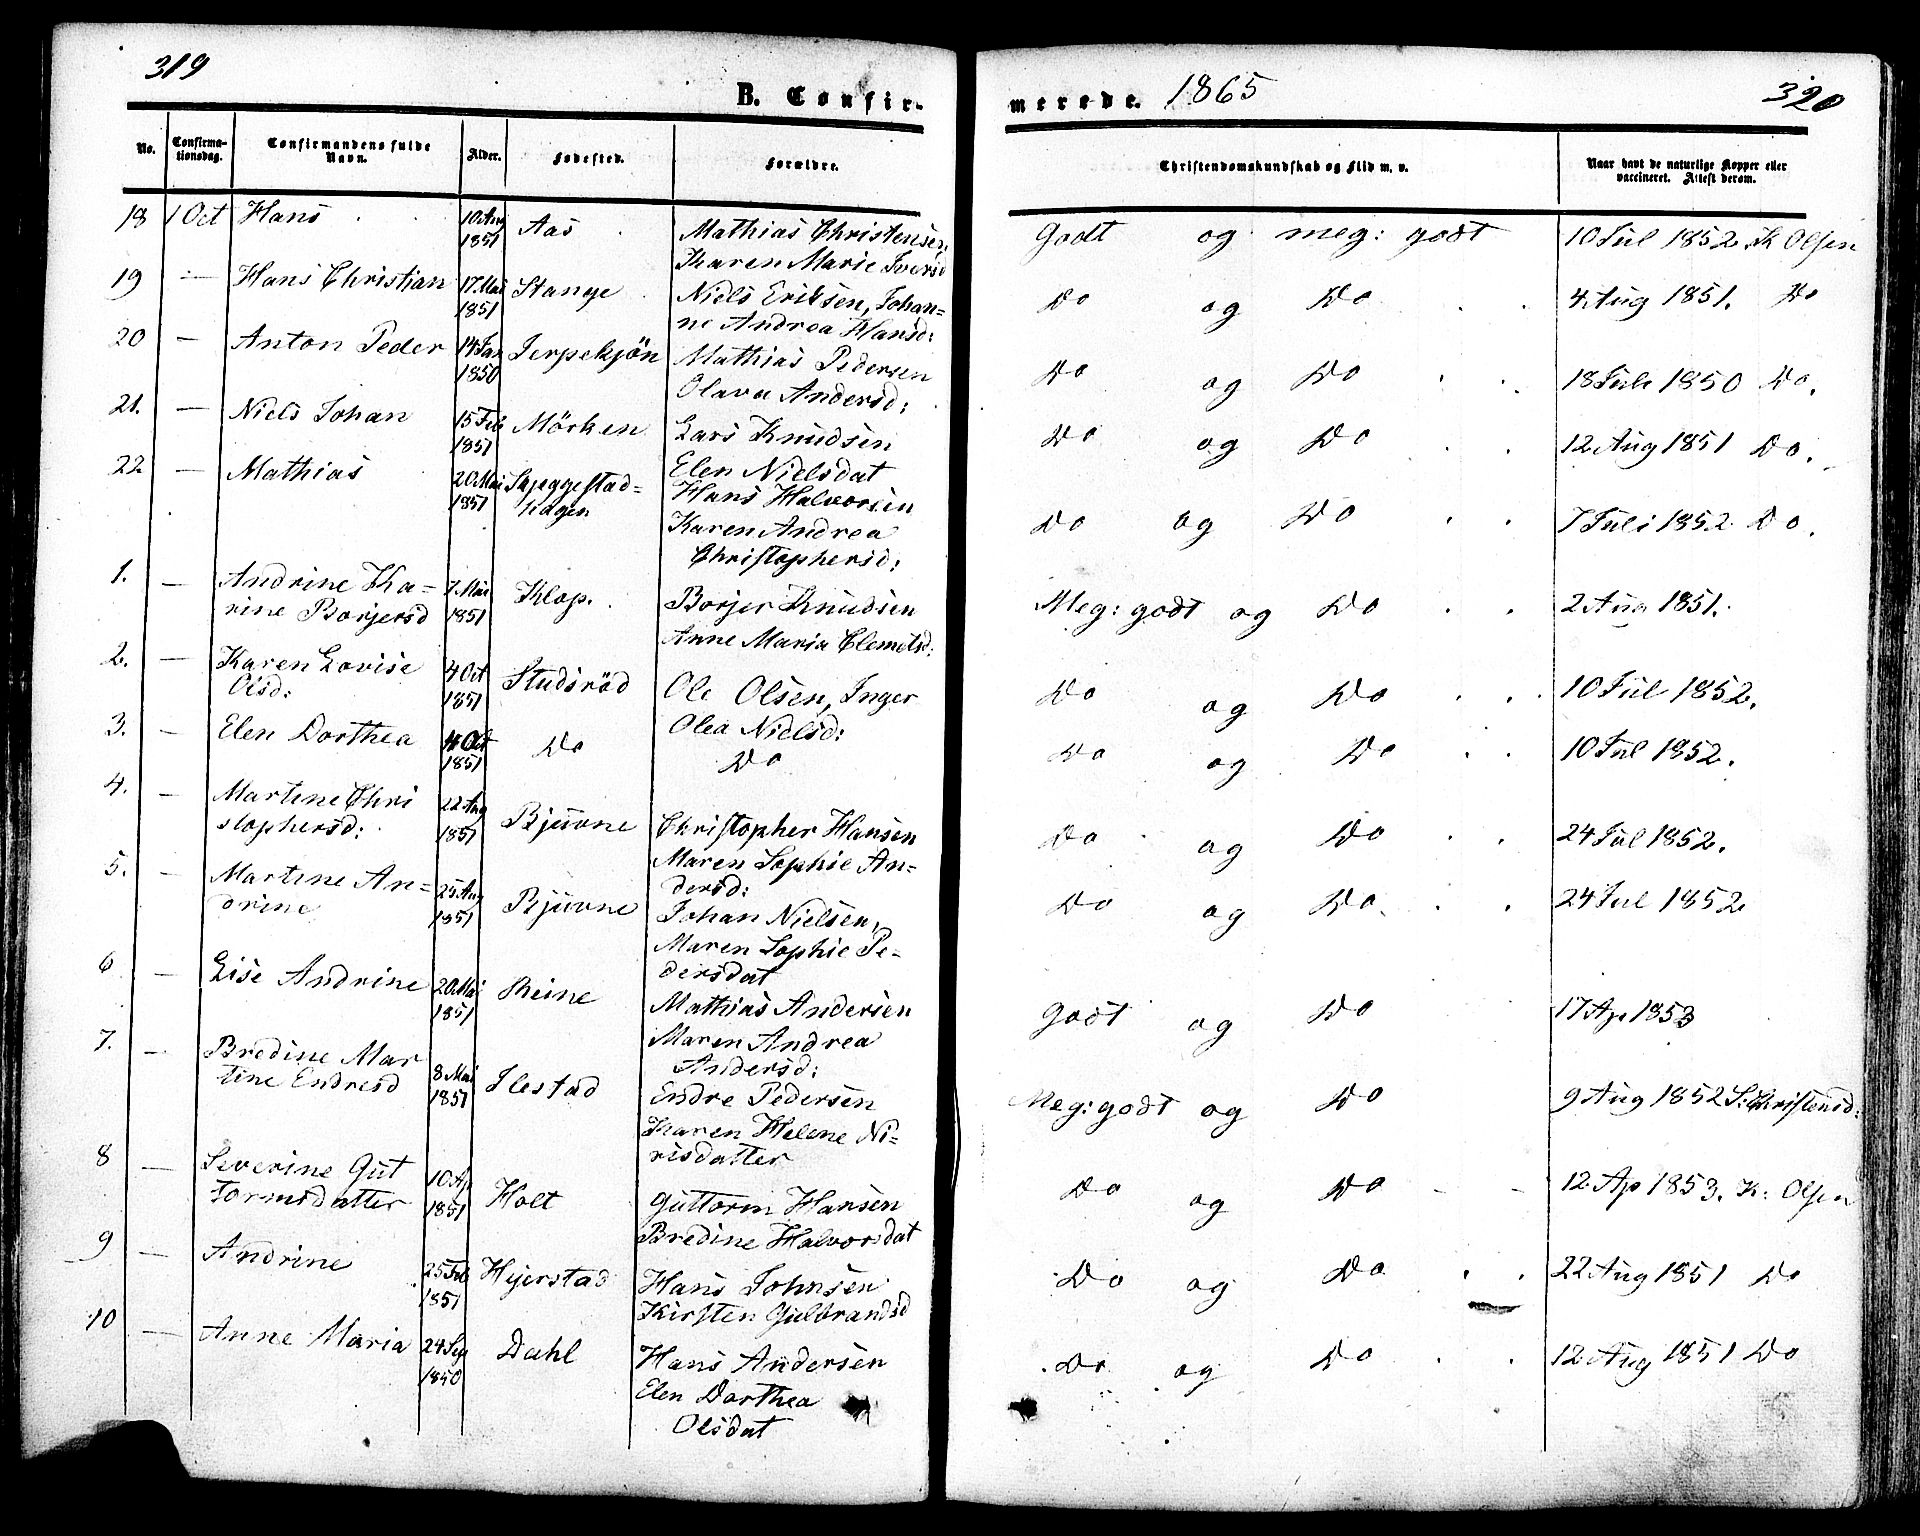 319
B. Confir-
No.
Confirma-
tionsdag.
Confirmandens fulde
Navn.
Alder.
Fødested.
Forældre.
18 1 Oct Hans 10 Aug 1851 Aas Mathias Christensen,
Karen Marie Iversd
19 — Hans Christian 17 Mai 1851 Stange Niels Eriksen, Johan=
ne Andrea Hansd:
20 — Anton Peder 14 Jan 1850 Jerpekjön Mathias Pedersen
Olava Andersd:
21. — Niels Johan 15 Feb 1851 Mörken Lars Knudsen
Elen Nielsdat
22 — Mathias 20 Mai 1851 Sneggestad=
hagen Hans Halvorsen
Karen Andrea
Christophersd:
1. — Andrine Ka-
rine Borjersd 7 Mai 1851 Klop. Borjer Knudsen
Anne Maria Clemetsd:
2. — Karen Lovise
Olsd: 4 Oct 1851 Studsröd Ole Olsen, Inger
Olea Nielsd:
3. — Elen Dorthea 4 Oct 1851 Do Do
4. — Martine Chri
stophersd: 22 Aug 1851 Bjuvne Christopher Hansen
Maren Sophie An=
dersd:
5. — Martine An=
drine 25 Aug 1851 Bjuvne Johan Nielsen,
Maren Sophie Pe-
dersdat
6 — Lise Andrine 20 Mai 1851 Reine Mathias Andersen
Maren Andrea
Andersd:
7. — Bredine Mar
tine Endresd 8 Mai 1851 Ilestad Endre Pedersen
Karen Helene Ni-
risdatter
8 — Severine Gut
tormsdatter 10 Ap 1851 Holt Guttorm Hansen
Bredine Halvorsdat
9 — Andrine 25 Feb 1851 Hijerstad Hans Johnsen
Kirsten Gulbrandsd
10 — Anne Maria 24 Sep 1850 Dahl Hans Andersen
Elen Dorthea
Olsdat
merede. 1865
320
Christendomskundskab og Flid m. v.
Naar havt de naturlige Kopper eller
vaccineret. Attest derom.
Godt og meg: godt 10 Jul 1852 K Olsen
Do og Do 4 Aug 1851. Do
Do og Do 18 Juli 1850 Do.
Do og Do 12 Aug 1851 Do.
Do og Do 7 Juli 1852 Do.
Meg: godt og Do 2 Aug 1851.
Do og Do 10 Jul 1852.
Do og Do 10 Jul 1852.
Do og Do 24 Jul 1852.
Do og Do 24 Jul 1852
Godt og Do 17 Ap 1853
Meg: godt og Do 9 Aug 1852 S: Christensd:
Do og Do 12 Ap 1853. K: Olsen
Do og Do 22 Aug 1851 Do
Do og Do 12 Aug 1851 Do